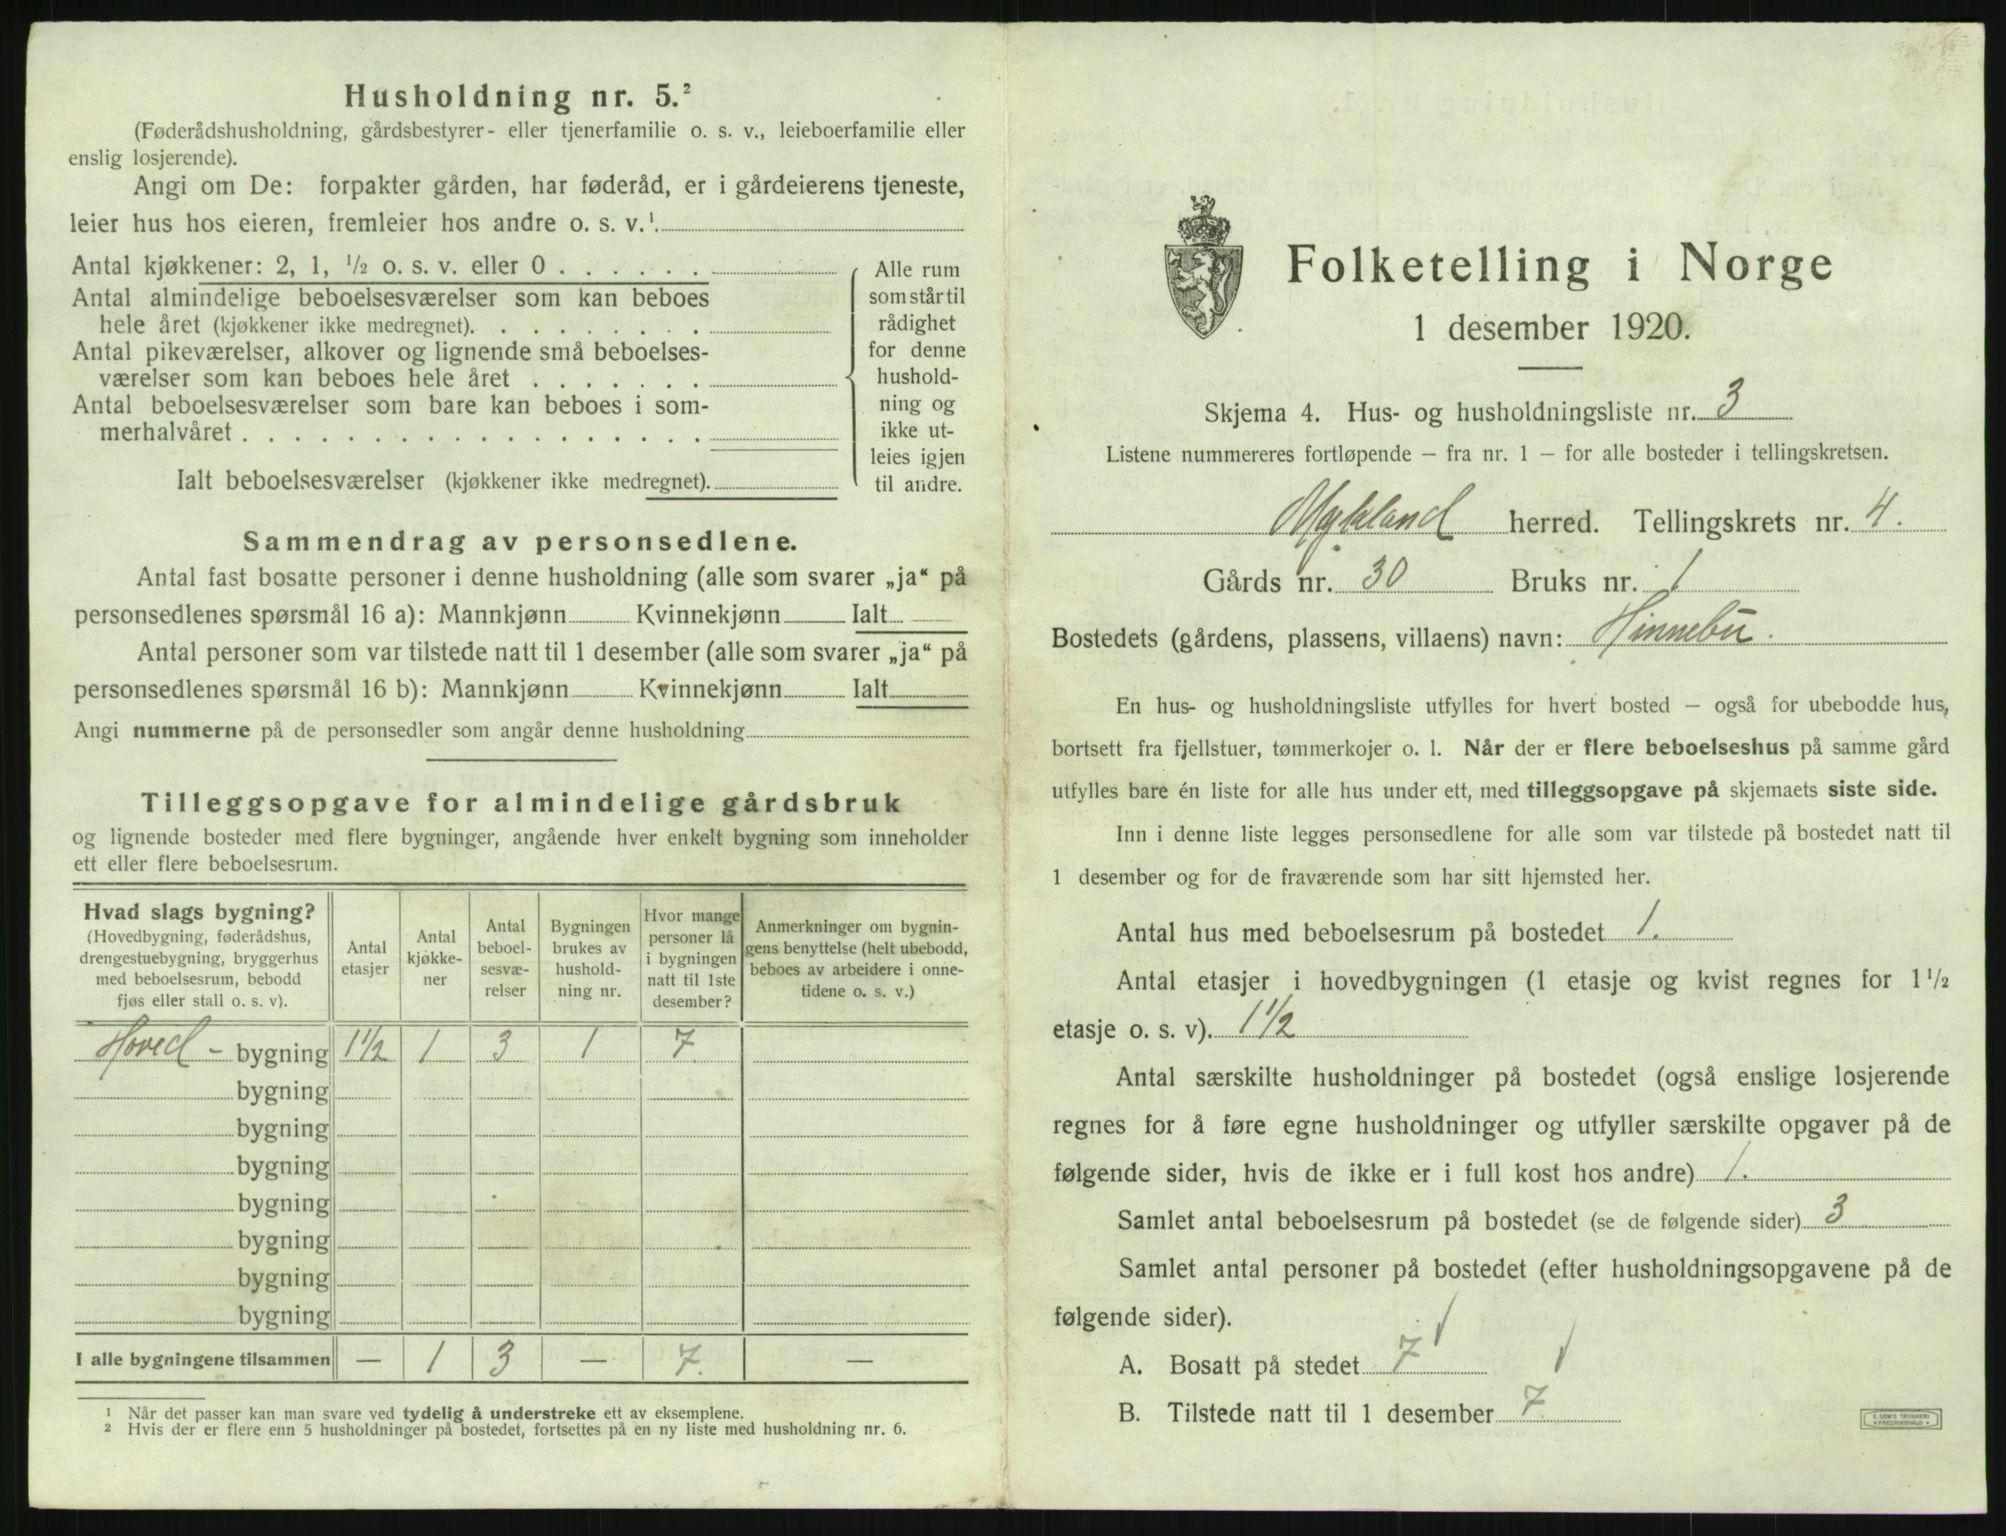 Husholdning nr. 5.²
(Føderådshusholdning, gårdsbestyrer- eller tjenerfamilie o. s. v., leieboerfamilie eller
enslig losjerende).
Angi om De: forpakter gården, har føderåd, er i gårdeierens tjeneste,
leier hus hos eieren, fremleier hos andre o. s. v.¹.
Antal kjøkkener: 2, 1, ½ o. s. v. eller 0 . . . . . .
Antal almindelige beboelsesværelser som kan beboes
hele året (kjøkkener ikke medregnet). . . . . . . . .
Antal pikeværelser, alkover og lignende små beboelses-
værelser som kan beboes hele året . . . . . . .
Antal beboelsesværelser som bare kan beboes i som-
merhalvåret . . . . . . . . . . . . . . . . . .
Ialt beboelsesværelser (kjøkkener ikke medregnet).
Alle rum
som står til
rådighet
for denne
hushold-
ning og
ikke ut-
leies igjen
til andre.
Sammendrag av personsedlene.
Antal fast bosatte personer i denne husholdning (alle som svarer „ja“ på
personsedlenes spørsmål 16 a): Mannkjønn Kvinnekjønn Ialt
Antal personer som var tilstede natt til 1 desember (alle som svarer „ja“ på
personsedlenes spørsmål 16 b): Mannkjønn Kvinnekjønn Ialt
Angi nummerne på de personsedler som angår denne husholdning
Tilleggsopgave for almindelige gårdsbruk
og lignende bosteder med flere bygninger, angående hver enkelt bygning som inneholder
ett eller flere beboelsesrum.
Hvad slags bygning?
(Hovedbygning, føderådshus,
drengestuebygning, bryggerhus
med beboelsesrum, bebodd
fjøs eller stall o. s. v).
Antal
etasjer
Antal
kjøkke-
ner
Antal
beboel-
sesvæ-
relser
Bygningen
brukes av
hushold-
ning nr.
Hvor mange
personer lå
i bygningen
natt til 1ste
desember?
Anmerkninger om bygnin-
gens benyttelse (helt ubebodd,
beboes av arbeidere i onne-
tidene o. s. v.)
Hoved - bygning 1½ 1 3 1 7.
bygning
bygning
bygning
bygning
bygning
bygning
bygning
I alle bygningene tilsammen — 1 3 — 7. —
¹ Når det passer kan man svare ved tydelig å understreke ett av eksemplene.
² Hvis der er flere enn 5 husholdninger på bostedet, fortsettes på en ny liste med husholdning nr. 6.
Folketelling i Norge
1 desember 1920.
Skjema 4. Hus- og husholdningsliste nr. 3
Listene nummereres fortløpende – fra nr. 1 – for alle bosteder i tellingskretsen.
Mykland herred. Tellingskrets nr. 4.
Gårds nr. 30 Bruks nr. 1
Bostedets (gårdens, plassens, villaens) navn: Hinnebu.
En hus- og husholdningsliste utfylles for hvert bosted – også for ubebodde hus,
bortsett fra fjellstuer, tømmerkojer o. l. Når der er flere beboelseshus på samme gård
utfylles bare én liste for alle hus under ett, med tilleggsopgave på skjemaets siste side.
Inn i denne liste legges personsedlene for alle som var tilstede på bostedet natt til
1 desember og for de fraværende som har sitt hjemsted her.
Antal hus med beboelsesrum på bostedet 1.
Antal etasjer i hovedbygningen (1 etasje og kvist regnes for 1½
etasje o. s. v). 1½
Antal særskilte husholdninger på bostedet (også enslige losjerende
regnes for å føre egne husholdninger og utfyller særskilte opgaver på de
følgende sider, hvis de ikke er i full kost hos andre) 1.
Samlet antal beboelsesrum på bostedet (se de følgende sider) 3
Samlet antal personer på bostedet (efter husholdningsopgavene på de
følgende sider).
A. Bosatt på stedet 7 √ √
B. Tilstede natt til 1 desember 7.
E. SEM'S TRYKKERI
FREDRIKSHALD